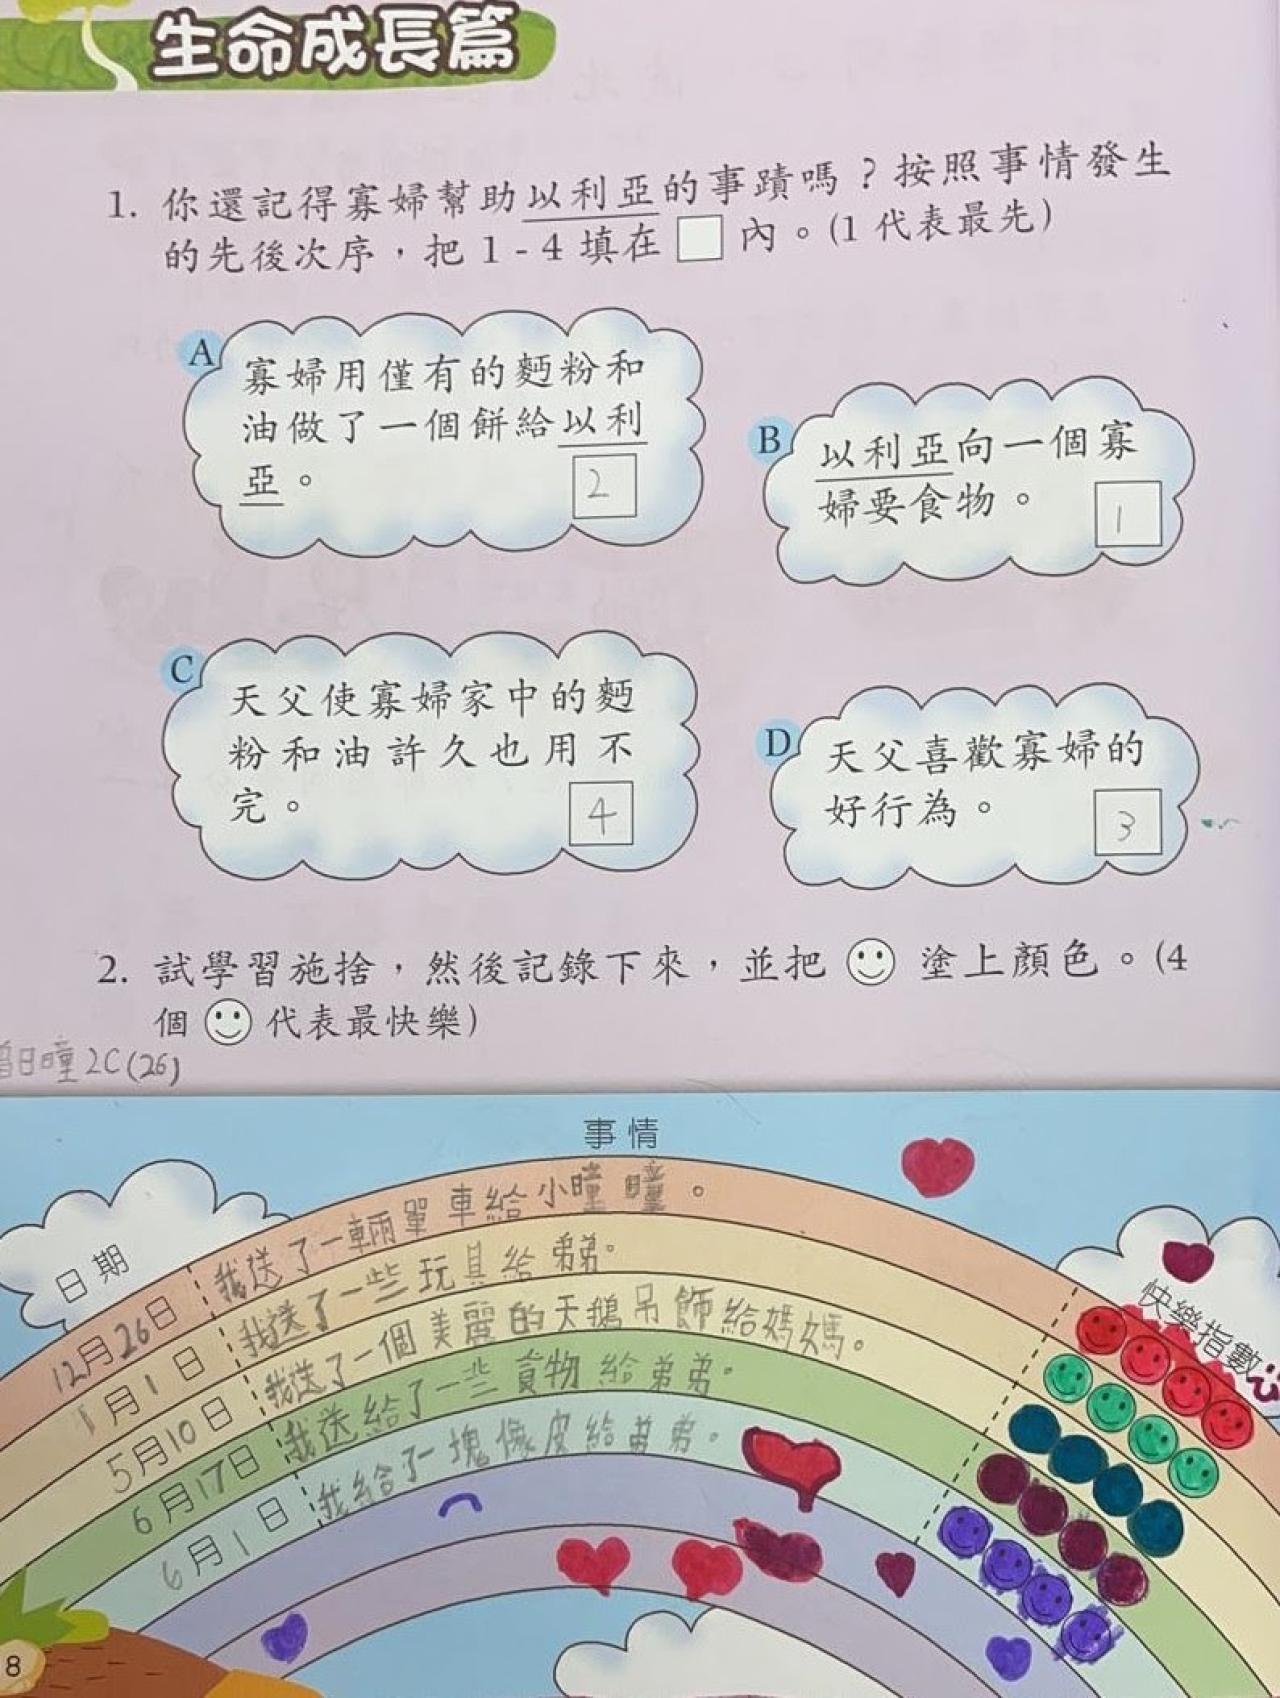 生命成長篇
1. 你還記得寡婦幫助以利亞的事蹟嗎？按照事情發生
的先後次序，把 1 - 4 填在 內。(1 代表最先)
A
寡婦用僅有的麪粉和
油做了一個餅給以利
亞。
2
B
以利亞向一個寡
婦要食物。
1
C
天父使寡婦家中的麪
粉和油許久也用不
完。
4
D
天父喜歡寡婦的
好行為。
3
2. 試學習施捨，然後記錄下來，並把 塗上顏色。(4
個 代表最快樂)
日瞳 2C (26)
事情
日期
快樂指數
12月26日 我送了一輛單車給小瞳瞳。
1月1日 我送了一些玩具給弟弟。
5月10日 我送了一個美麗的天鵝吊飾給媽媽。
6月17日 我送給了一些食物給弟弟。
6月1日 我給了一塊像皮給弟弟。
8